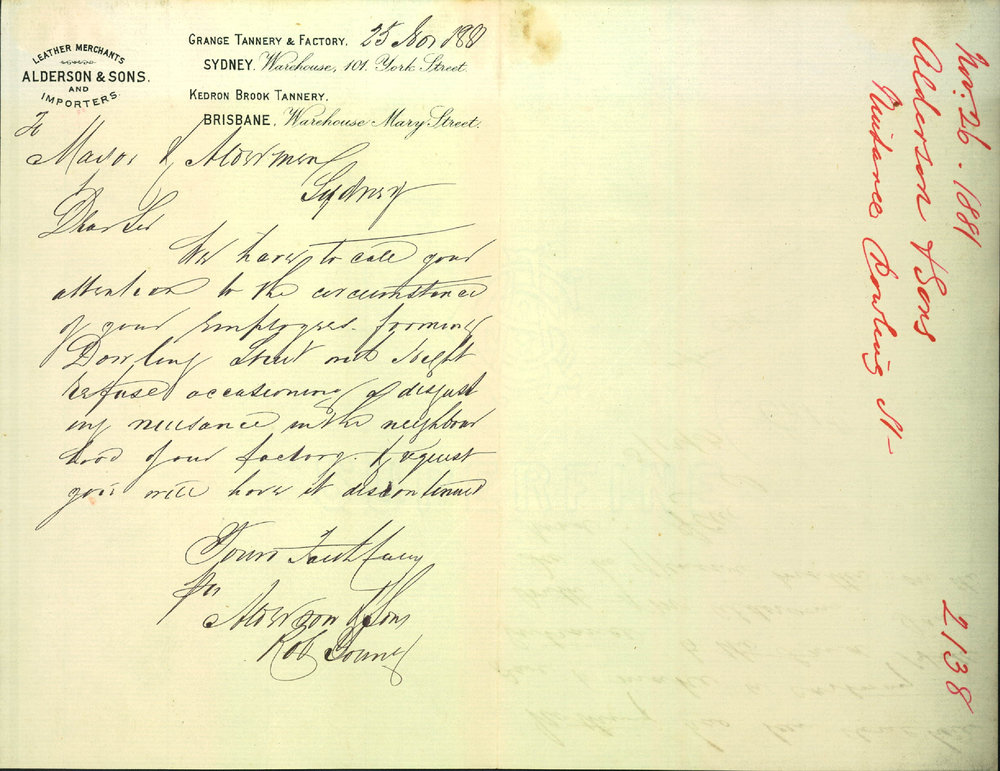 LEATHER MERCHANTS
ALDERSON & SONS.
AND
IMPORTERS.
GRANGE TANNERY & FACTORY.
SYDNEY. Warehouse, 101. York Street.
KEDRON BROOK TANNERY.
BRISBANE. Warehouse Mary Street.
25 Nov 1881
To
Mayor & Aldermen
Sydney
Dear Sir
We have to call your
attention to the circumstance
of your Employees forming
Dowling Street with Night
refuse occasioning a disgust
ing nuisance in the neighbour
hood of our factory. & request
you will have it discontinued
Yours Faithfully
for
Alderson & Sons
Rob Young
Nov. 26. 1881
Alderson & Sons
Nuisance Dowling St
2138